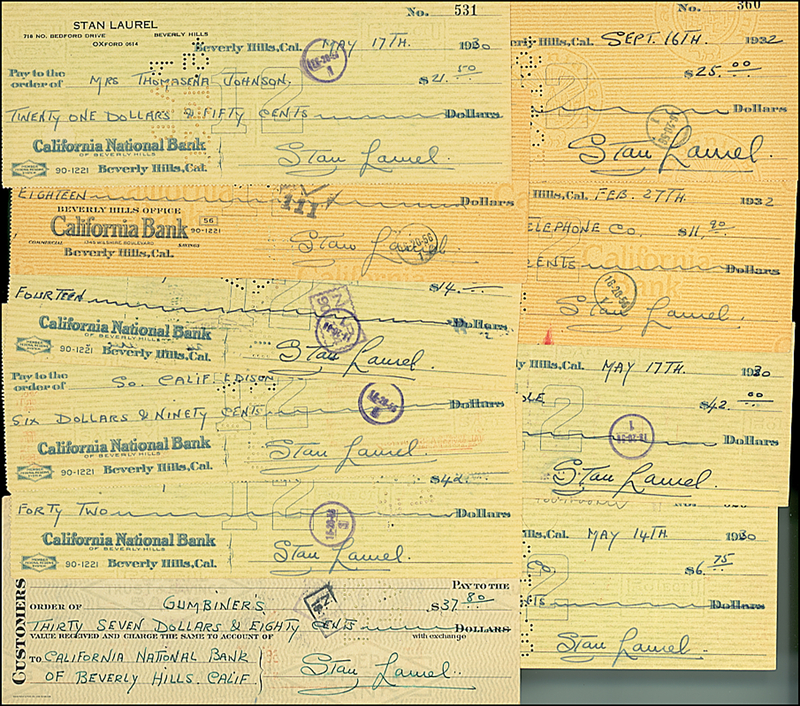 No. 531
STAN LAUREL
718 NO. BEDFORD DRIVE BEVERLY HILLS
OXFORD 0614
Beverly Hills, Cal. MAY 17TH. 1930
Pay to the
order of MRS THOMASENA JOHNSON. $21.50
TWENTY ONE DOLLARS & FIFTY CENTS Dollars
California National Bank
OF BEVERLY HILLS
90-1221 Beverly Hills, Cal.
Stan Laurel.
EIGHTEEN Dollars
111
BEVERLY HILLS OFFICE
California Bank 56
90-1221
COMMERCIAL SAVINGS
Beverly Hills, Cal.
Stan Laurel.
$14.
FOURTEEN Dollars
California National Bank
OF BEVERLY HILLS
90-1221 Beverly Hills, Cal.
Stan Laurel.
Pay to the
order of SO. CALIF EDISON
SIX DOLLARS & NINETY CENTS Dollars
California National Bank
OF BEVERLY HILLS
90-1221 Beverly Hills, Cal.
Stan Laurel.
$42.
FORTY TWO Dollars
California National Bank
OF BEVERLY HILLS
90-1221 Beverly Hills, Cal.
Stan Laurel.
CUSTOMERS
PAY TO THE
ORDER OF GUMBINER'S $37.80
THIRTY SEVEN DOLLARS & EIGHTY CENTS DOLLARS
VALUE RECEIVED AND CHARGE THE SAME TO ACCOUNT OF with exchange
TO CALIFORNIA NATIONAL BANK
OF BEVERLY HILLS. CALIF
Stan Laurel.
No. 360
Beverly Hills, Cal. SEPT. 16TH. 1932
$25.00
Dollars
Stan Laurel.
Hills, Cal. FEB. 27TH. 1932
TELEPHONE CO. $11.90
CENTS Dollars
Stan Laurel.
Hills, Cal. MAY 17TH. 1930
$42.00
Dollars
Stan Laurel.
Hills, Cal. MAY 14TH. 1930
CO $6.75
Dollars
Stan Laurel.